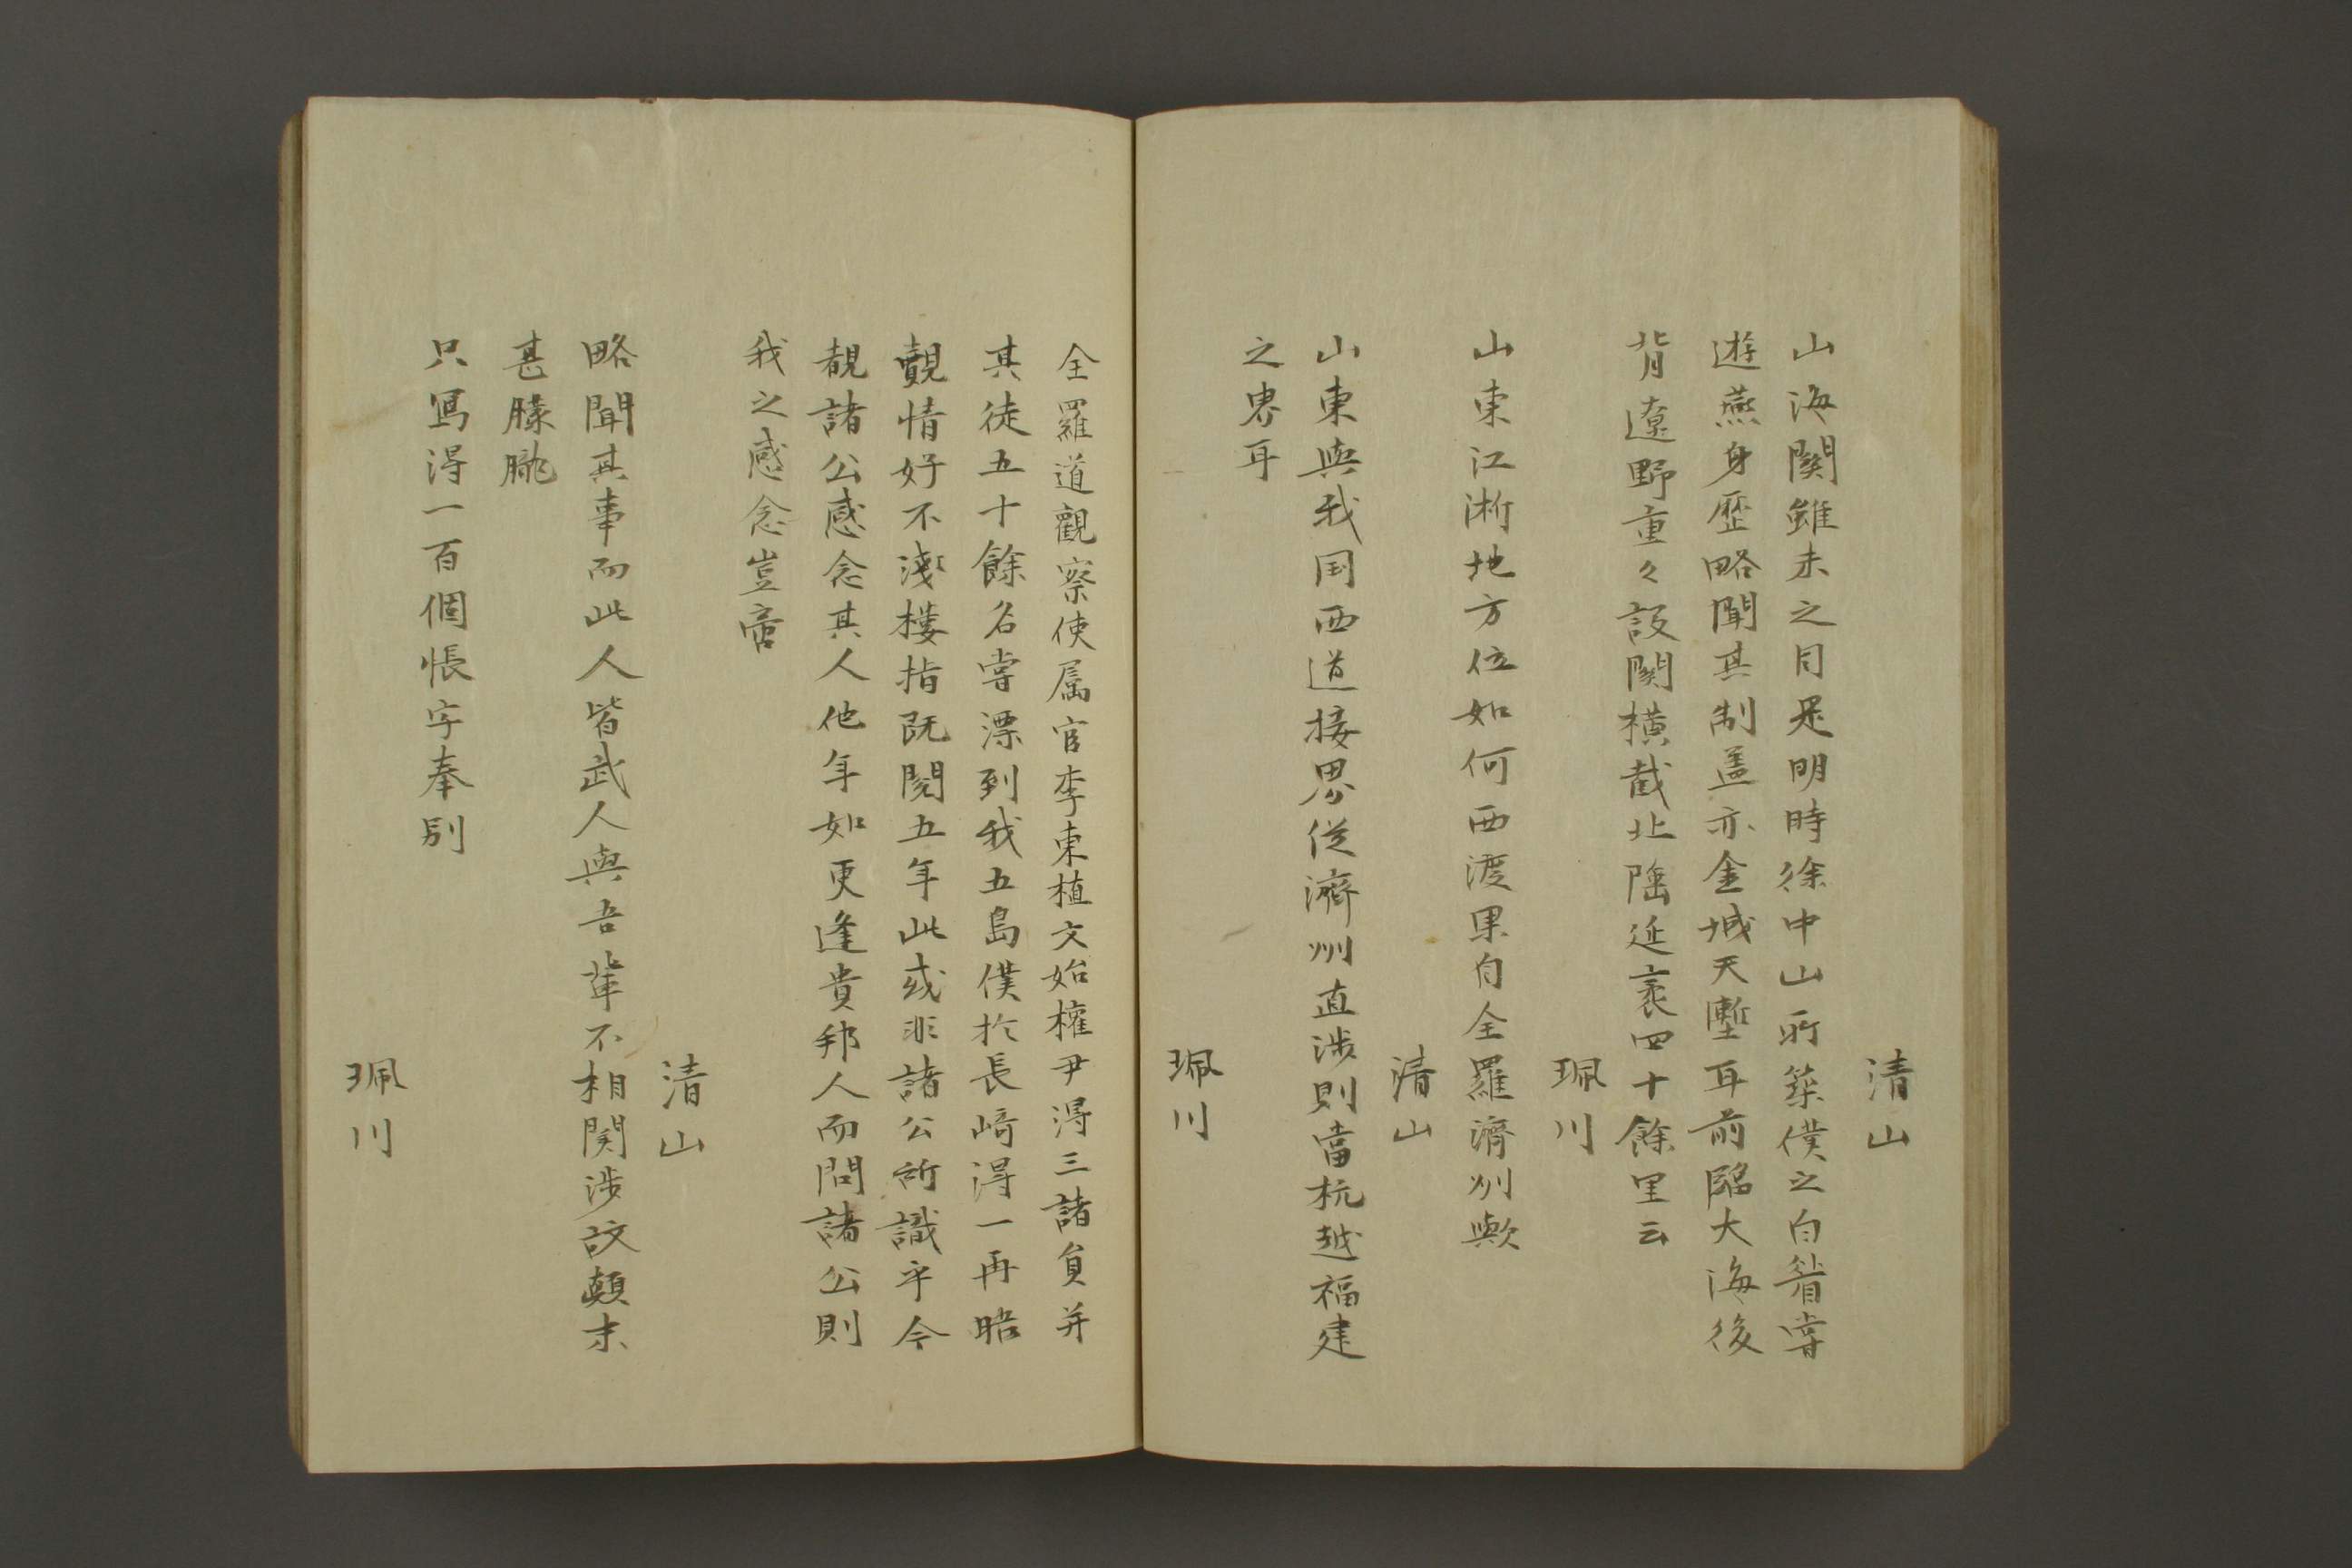 清山
山海関雖未之目是明時徐中山所築僕之白眷嘗
遊燕身歴略聞其制盖亦金城天塹耳前臨大海後
背遼野重々設関横截北陲延袤四十餘里云
珮川
山東江淅地方位如何西渡果自全羅濟州歟
清山
山東與我国西道接界従濟州直渉則當杭越福建
之界耳
珮川
全羅道觀察使属官李東植文始權尹得三諸負并
其徒五十餘名嘗漂到我五島僕於長崎得一再晤
覿情好不淺樓指既閲五年此或非諸公所識乎今
覩諸公感念其人他年如更逢貴邦人而問諸公則
我之感念豈啻
清山
略聞其事而此人皆武人與吾輩不相関渉故顛末
甚朦朧
只寫得一百個悵字奉別
珮川